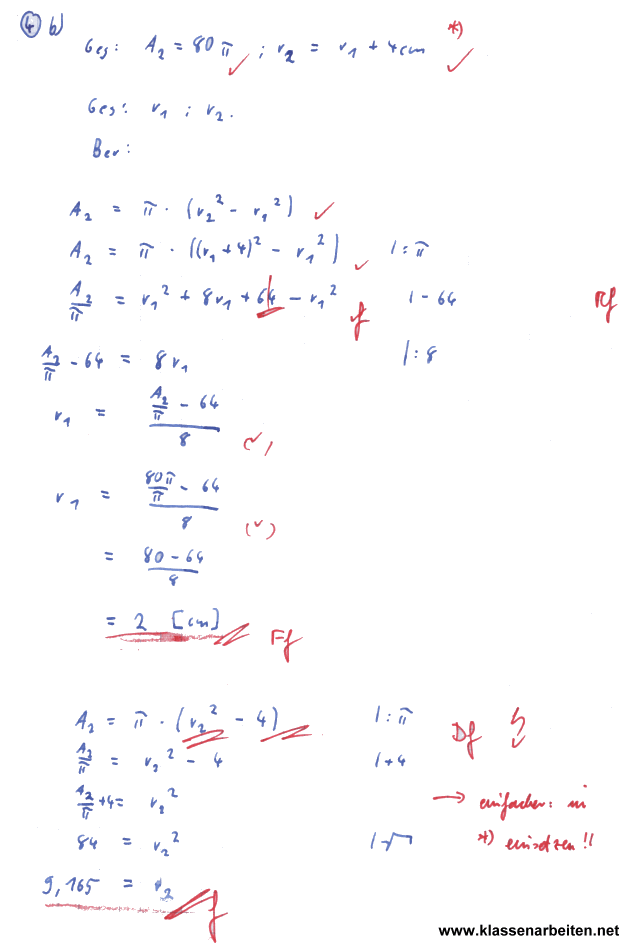 4 b)
Ges: A₂ = 80π ; r₂ = r₁ + 4cm *)
Ges: r₁ ; r₂.
Ber:
A₂ = π · (r₂² - r₁²)
A₂ = π · ((r₁+4)² - r₁²) | : π
A₂/π = r₁² + 8r₁ + 64 - r₁² f | - 64 Rf
A₂/π - 64 = 8r₁ | : 8
r₁ = (A₂/π - 64)/8 (✓)
r₁ = (80π/π - 64)/8 (✓)
= (80 - 64)/8
= 2 [cm] Ff
A₂ = π · (r₂² - 4) | : π Df
A₂/π = r₂² - 4 | + 4
A₂/π + 4 = r₂² → einfacher: in
84 = r₂² | √ *) einsetzen!!
9,165 = r₂ f
www.klassenarbeiten.net